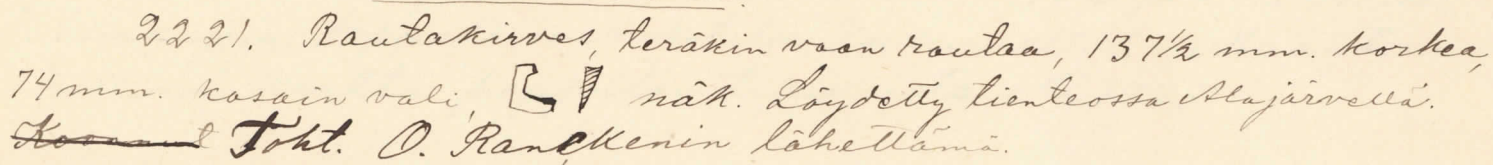 2221. Rautakirves, teräkin vaan rautaa, 137½ mm. korkea,
74 mm. kasain väli, näk. Löydetty tienteossa Alajärvellä.
Toht. O. Ranckenin lähettämä.